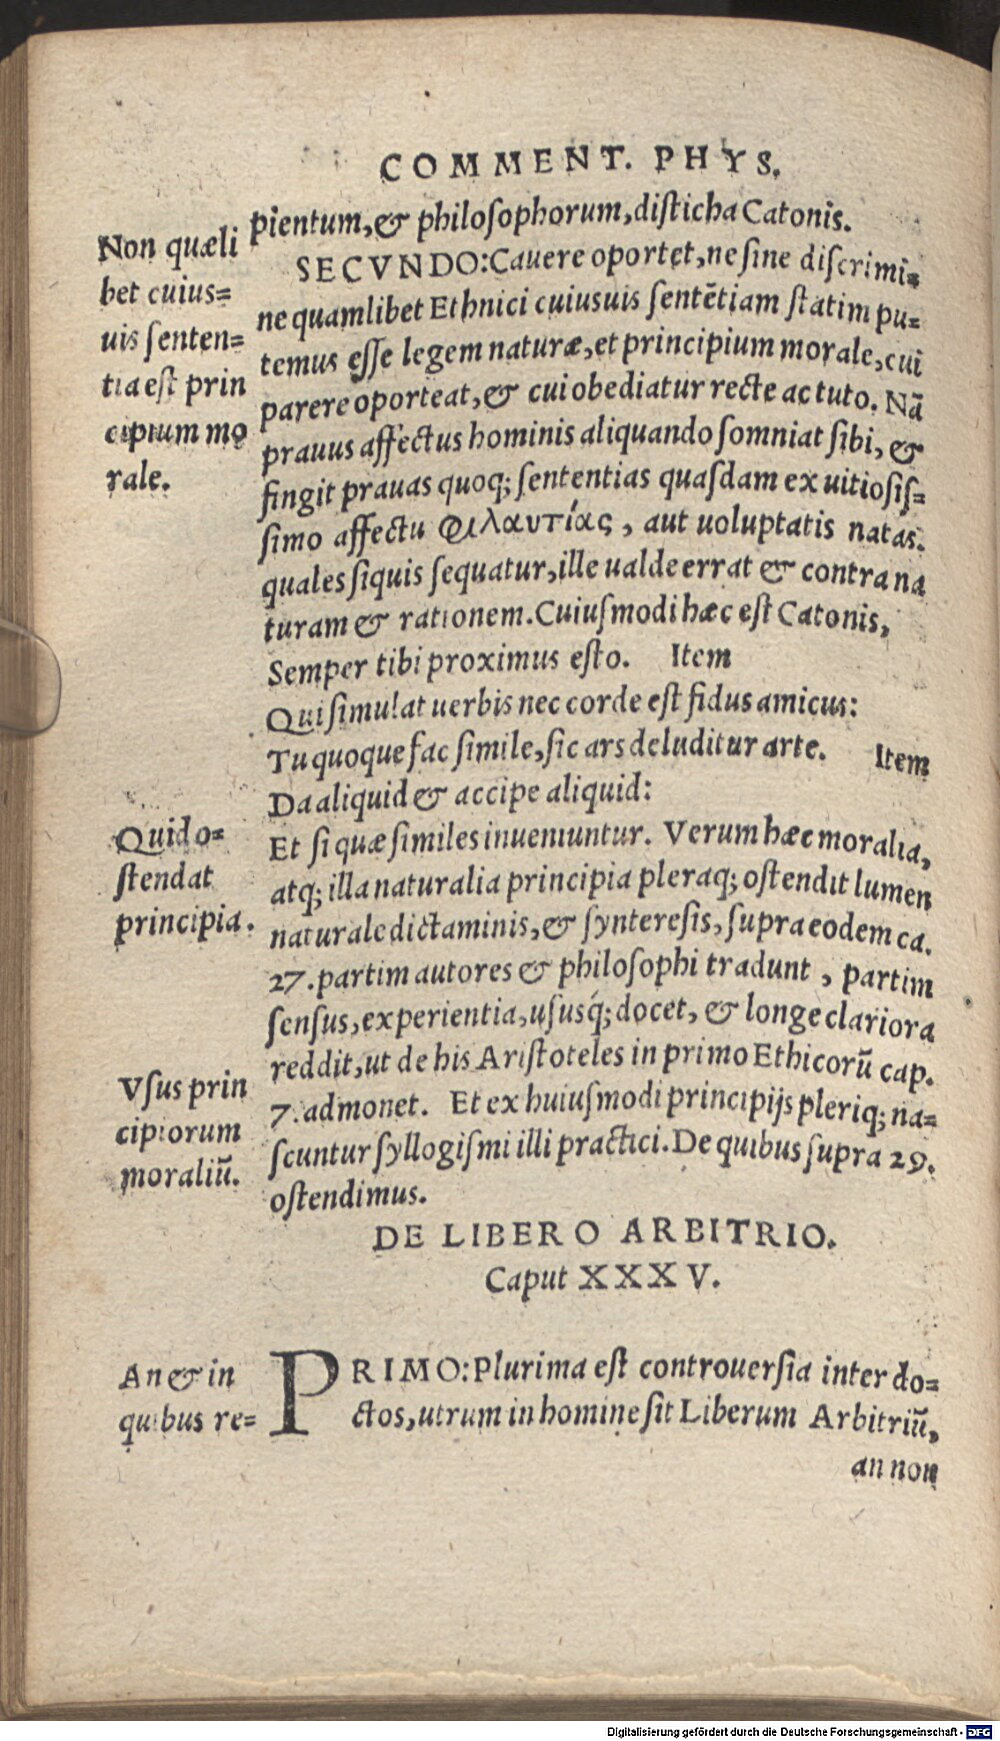 COMMENT. PHYS.
pientum, & philoſophorum, diſticha Catonis.
Non quæli
bet cuius=
uis ſenten=
tia eſt prin
cipium mo
rale.
SECVNDO: Cauere oportet, ne ſine diſcrimi=
ne quamlibet Ethnici cuiusuis ſentētiam ſtatim pu=
temus eſſe legem naturæ, et principium morale, cui
parere oporteat, & cui obediatur recte ac tuto. Nā
prauus affectus hominis aliquando ſomniat ſibi, &
fingit prauas quoq; ſententias quaſdam ex uitioſiſ=
ſimo affectu Φιλαυτίας, aut uoluptatis natas.
quales ſiquis ſequatur, ille ualde errat & contra na
turam & rationem. Cuiuſmodi hæc eſt Catonis,
Semper tibi proximus eſto. Item
Qui ſimulat uerbis nec corde eſt fidus amicus:
Tu quoque fac ſimile, ſic ars deluditur arte. Item
Da aliquid & accipe aliquid:
Quid o=
ſtendat
principia.
Et ſi quæ ſimiles inueniuntur. Verum hæc moralia,
atq; illa naturalia principia pleraq; oſtendit lumen
naturale dictaminis, & ſynterеſis, ſupra eodem ca.
27. partim autores & philoſophi tradunt, partim
ſenſus, experientia, uſusq́; docet, & longe clariora
reddit, ut de his Ariſtoteles in primo Ethicorū cap.
7. admonet. Et ex huiuſmodi principijs pleriq; na=
ſcuntur ſyllogiſmi illi practici. De quibus ſupra 29.
oſtendimus.
Vſus prin
cipiorum
moraliū.
DE LIBERO ARBITRIO.
Caput XXXV.
An & in
quibus re=
PRIMO: Plurima eſt controuerſia inter do=
ctos, utrum in homine ſit Liberum Arbitriū,
an non
Digitalisierung gefördert durch die Deutsche Forschungsgemeinschaft - DFG